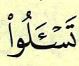 تَسْـَٔلُوا۟